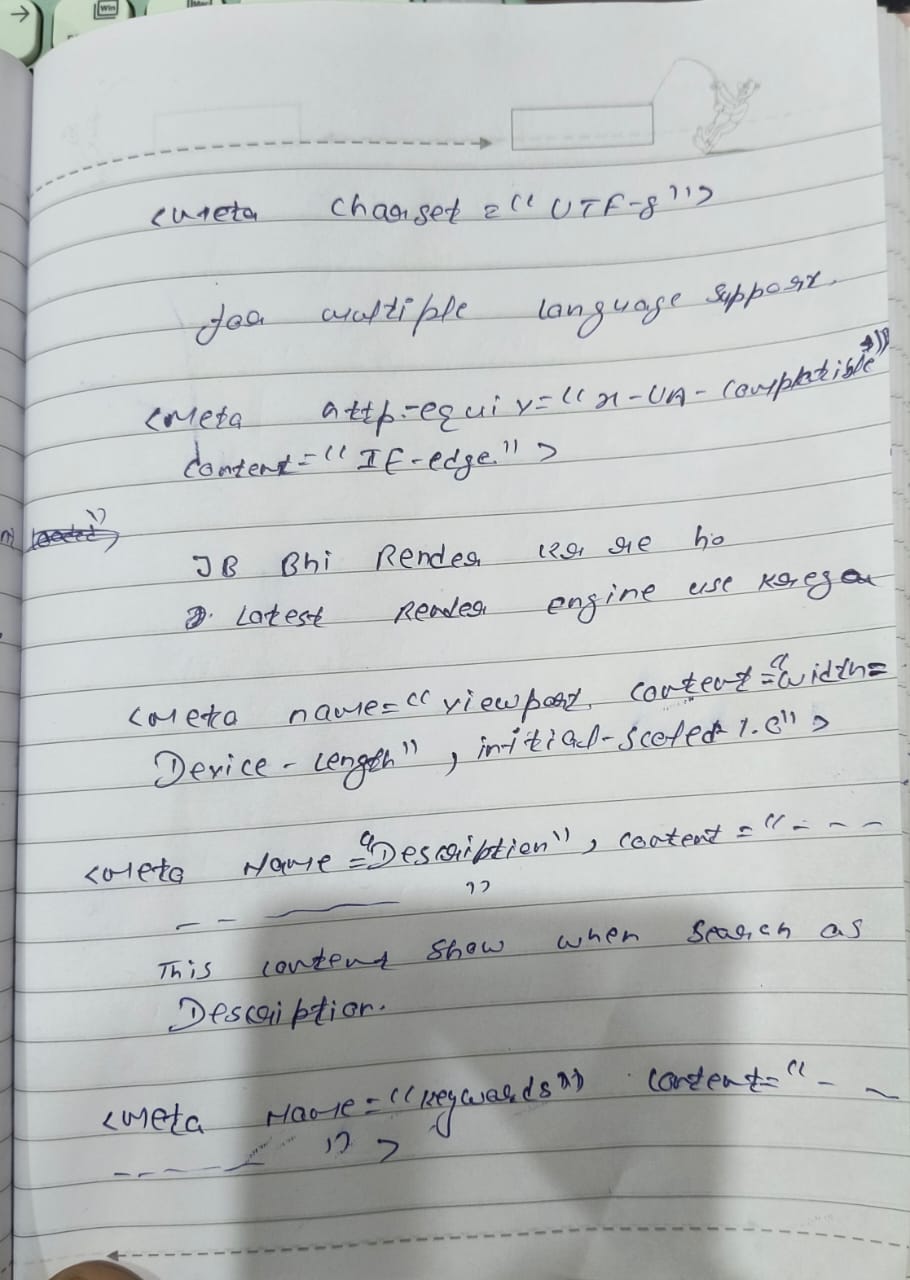 Win
<meta charset = "UTF-8">
for multiple language support.
<Meta http-equiv="x-UA-Compatible"
Content="IE-edge">
JB Bhi Render kar rhe ho
Latest Render engine use krega
<meta name="viewport, content="width=
Device-length", initial-scaled 1.0">
<meta Name="Description", content="- - -
- - — "
This content show when search as
Description.
<meta Name="keywords" content="- -
- - - - "
>